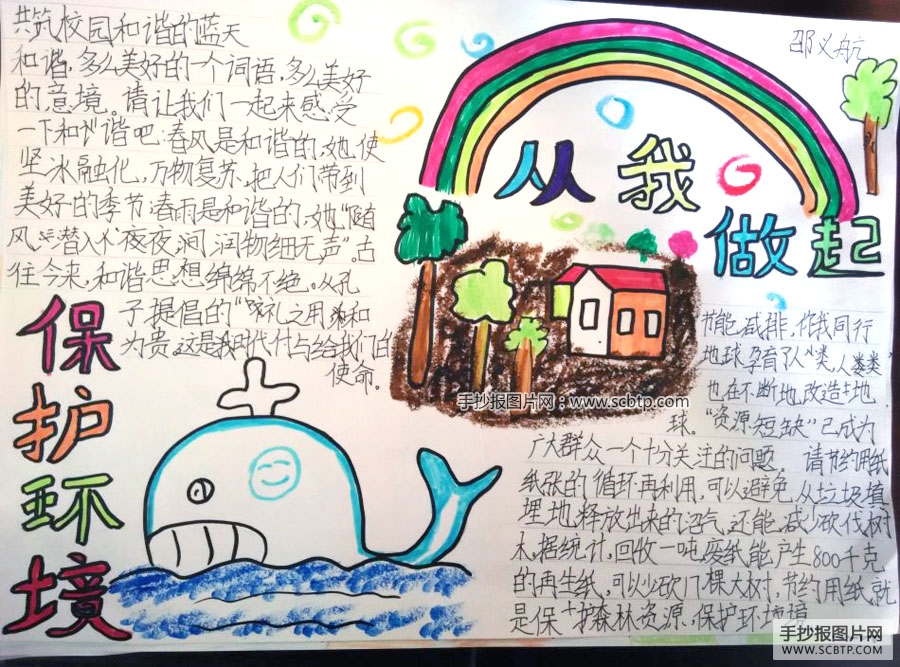 共筑校园和谐的蓝天
和谐,多么美好的一个词语,多么美好
的意境。请让我们一起来感受
一下和谐吧:春风是和谐的,她使
坚冰融化,万物复苏,把人们带到
美好的季节;春雨是和谐的,她“随
风潜入夜,润物细无声”。古
往今来,和谐思想绵绵不绝。从孔
子提倡的“礼之用和
为贵,这是我时代付与给我们的
使命。
保护环境
从我
做起
邵义航
节能减排,你我同行
地球孕育了人类,人类
也在不断地改造地
球。“资源短缺”已成为
广大群众一个十分关注的问题。请节约用纸
纸张的循环再利用,可以避免从垃圾填
埋地释放出来的沼气,还能减少砍伐树
木,据统计,回收一吨废纸能产生800千克
的再生纸,可以少砍17棵大树,节约用纸,就
是保护森林资源,保护环境
手抄报图片网:www.scbtp.com
手抄报图片网
WWW.SCBTP.COM